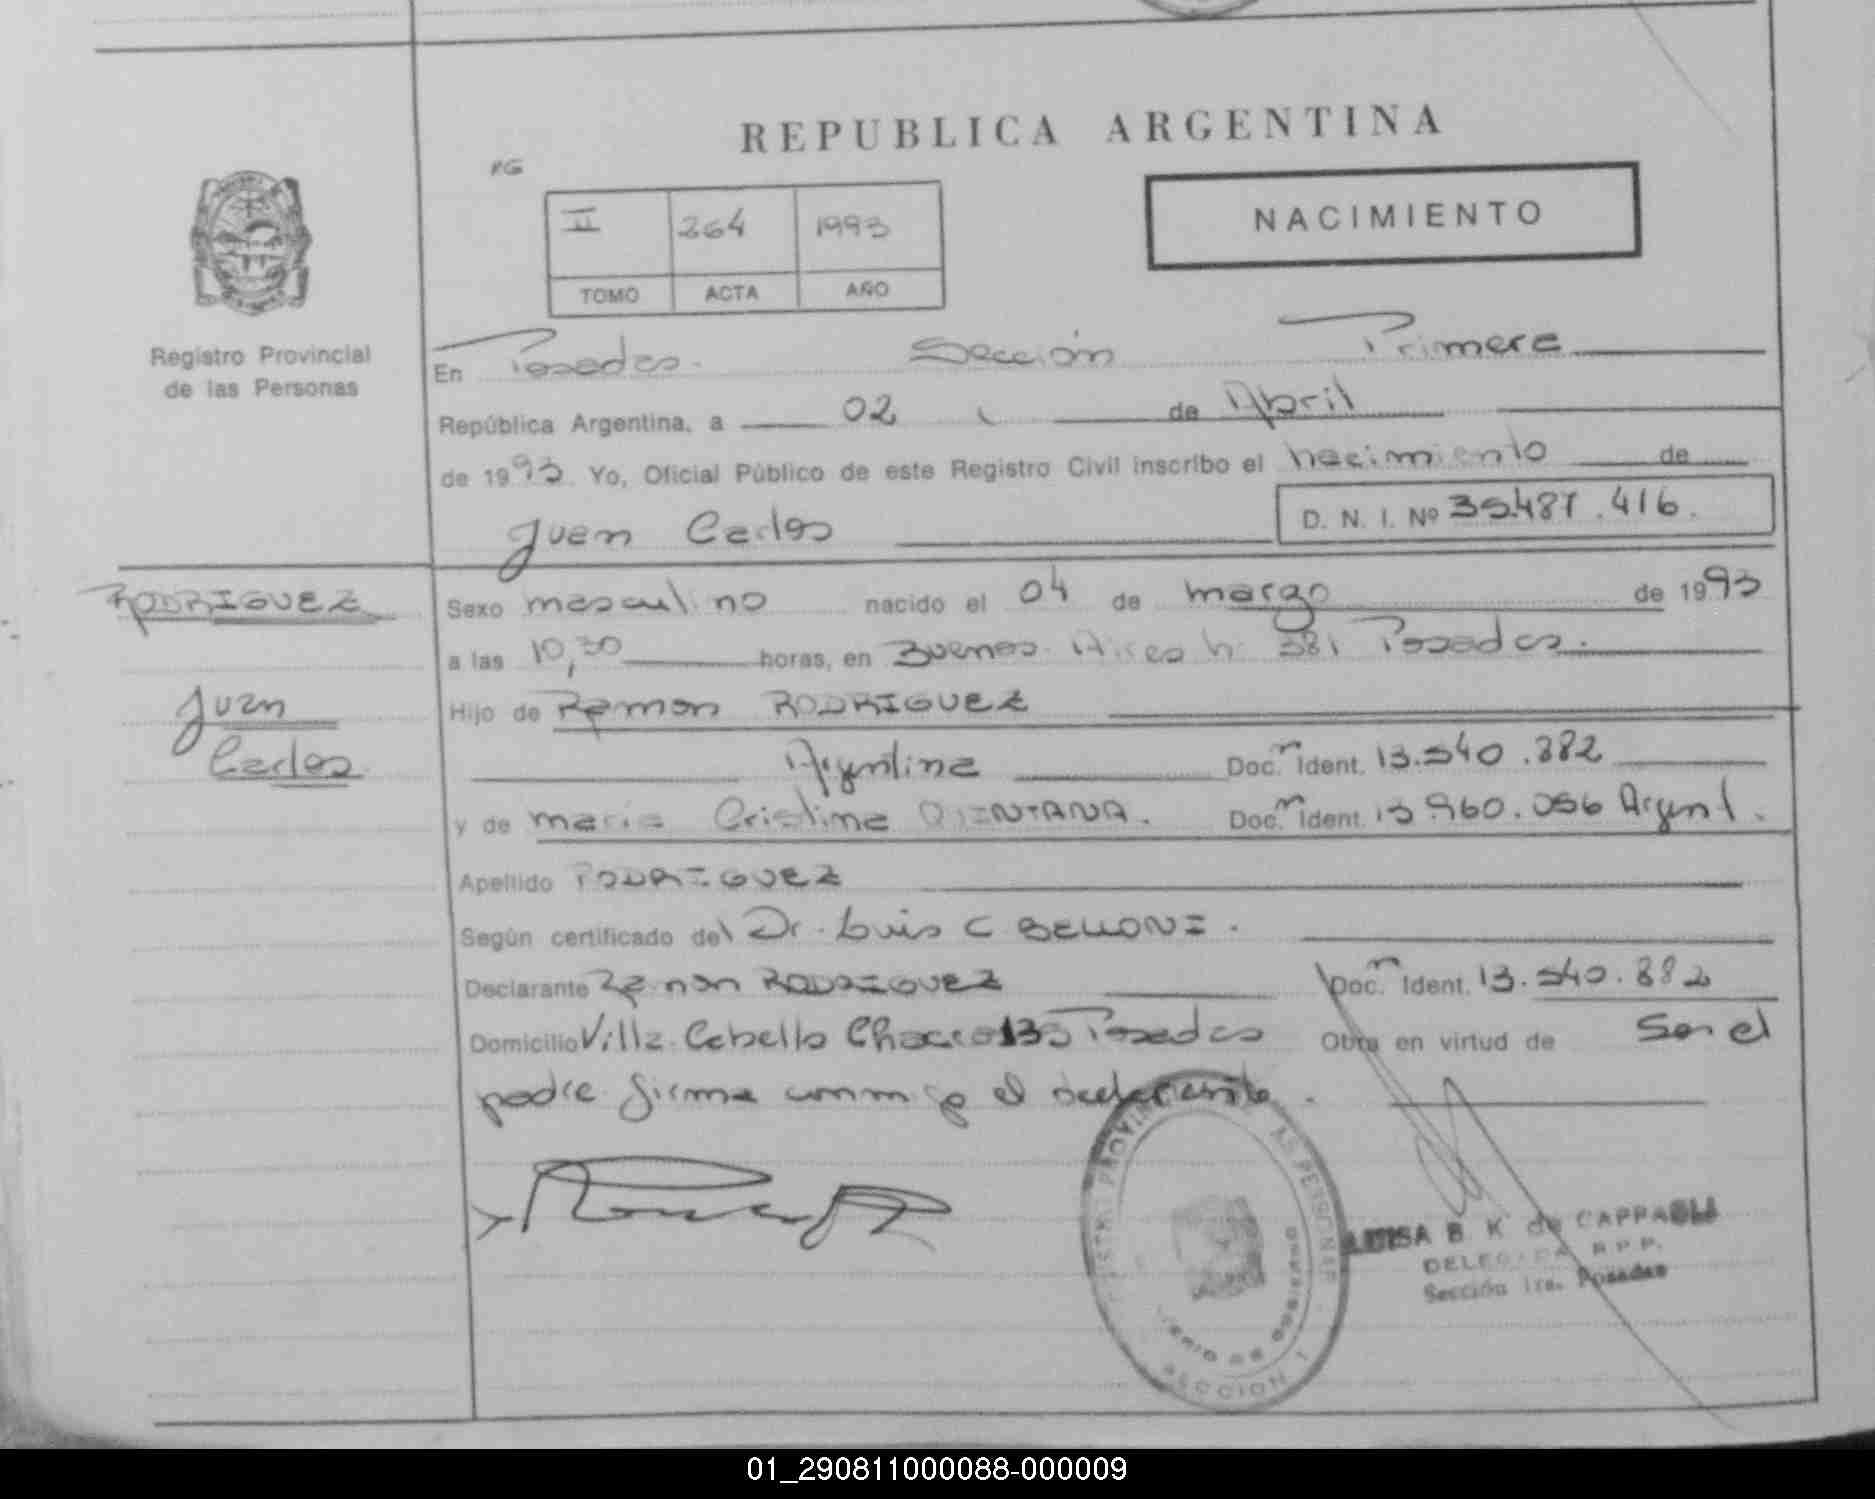 REPUBLICA ARGENTINA
RG
II 264 1993
TOMO ACTA AÑO
NACIMIENTO
Registro Provincial
de las Personas
En Posadas. Sección Primera
República Argentina, a 02 de Abril
de 1993 Yo, Oficial Público de este Registro Civil inscribo el nacimiento de
Juan Carlos D. N. I. Nº 35.487.416.
RODRIGUEZ
Juan
Carlos
Sexo masculino nacido el 04 de marzo de 1993
a las 10,30 horas, en Buenos Aires n 381 Posadas.
Hijo de Ramon RODRIGUEZ
Argentina Doc. Ident. 13.540.882
y de maria Cristina QUINTANA. Doc. Ident. 13.960.056 Argent.
Apellido RODRIGUEZ
Según certificado del Dr. Luis C BELLONI.
Declarante Ramon RODRIGUEZ Doc. Ident. 13.540.882
Domicilio Villa Cabello Posadas Obra en virtud de Ser el
padre firma el declarante.
LUISA B. K. de CAPPAELLI
DELEGADA R.P.P.
Sección 1ra. Posadas
SECCION 1
01_290811000088-000009